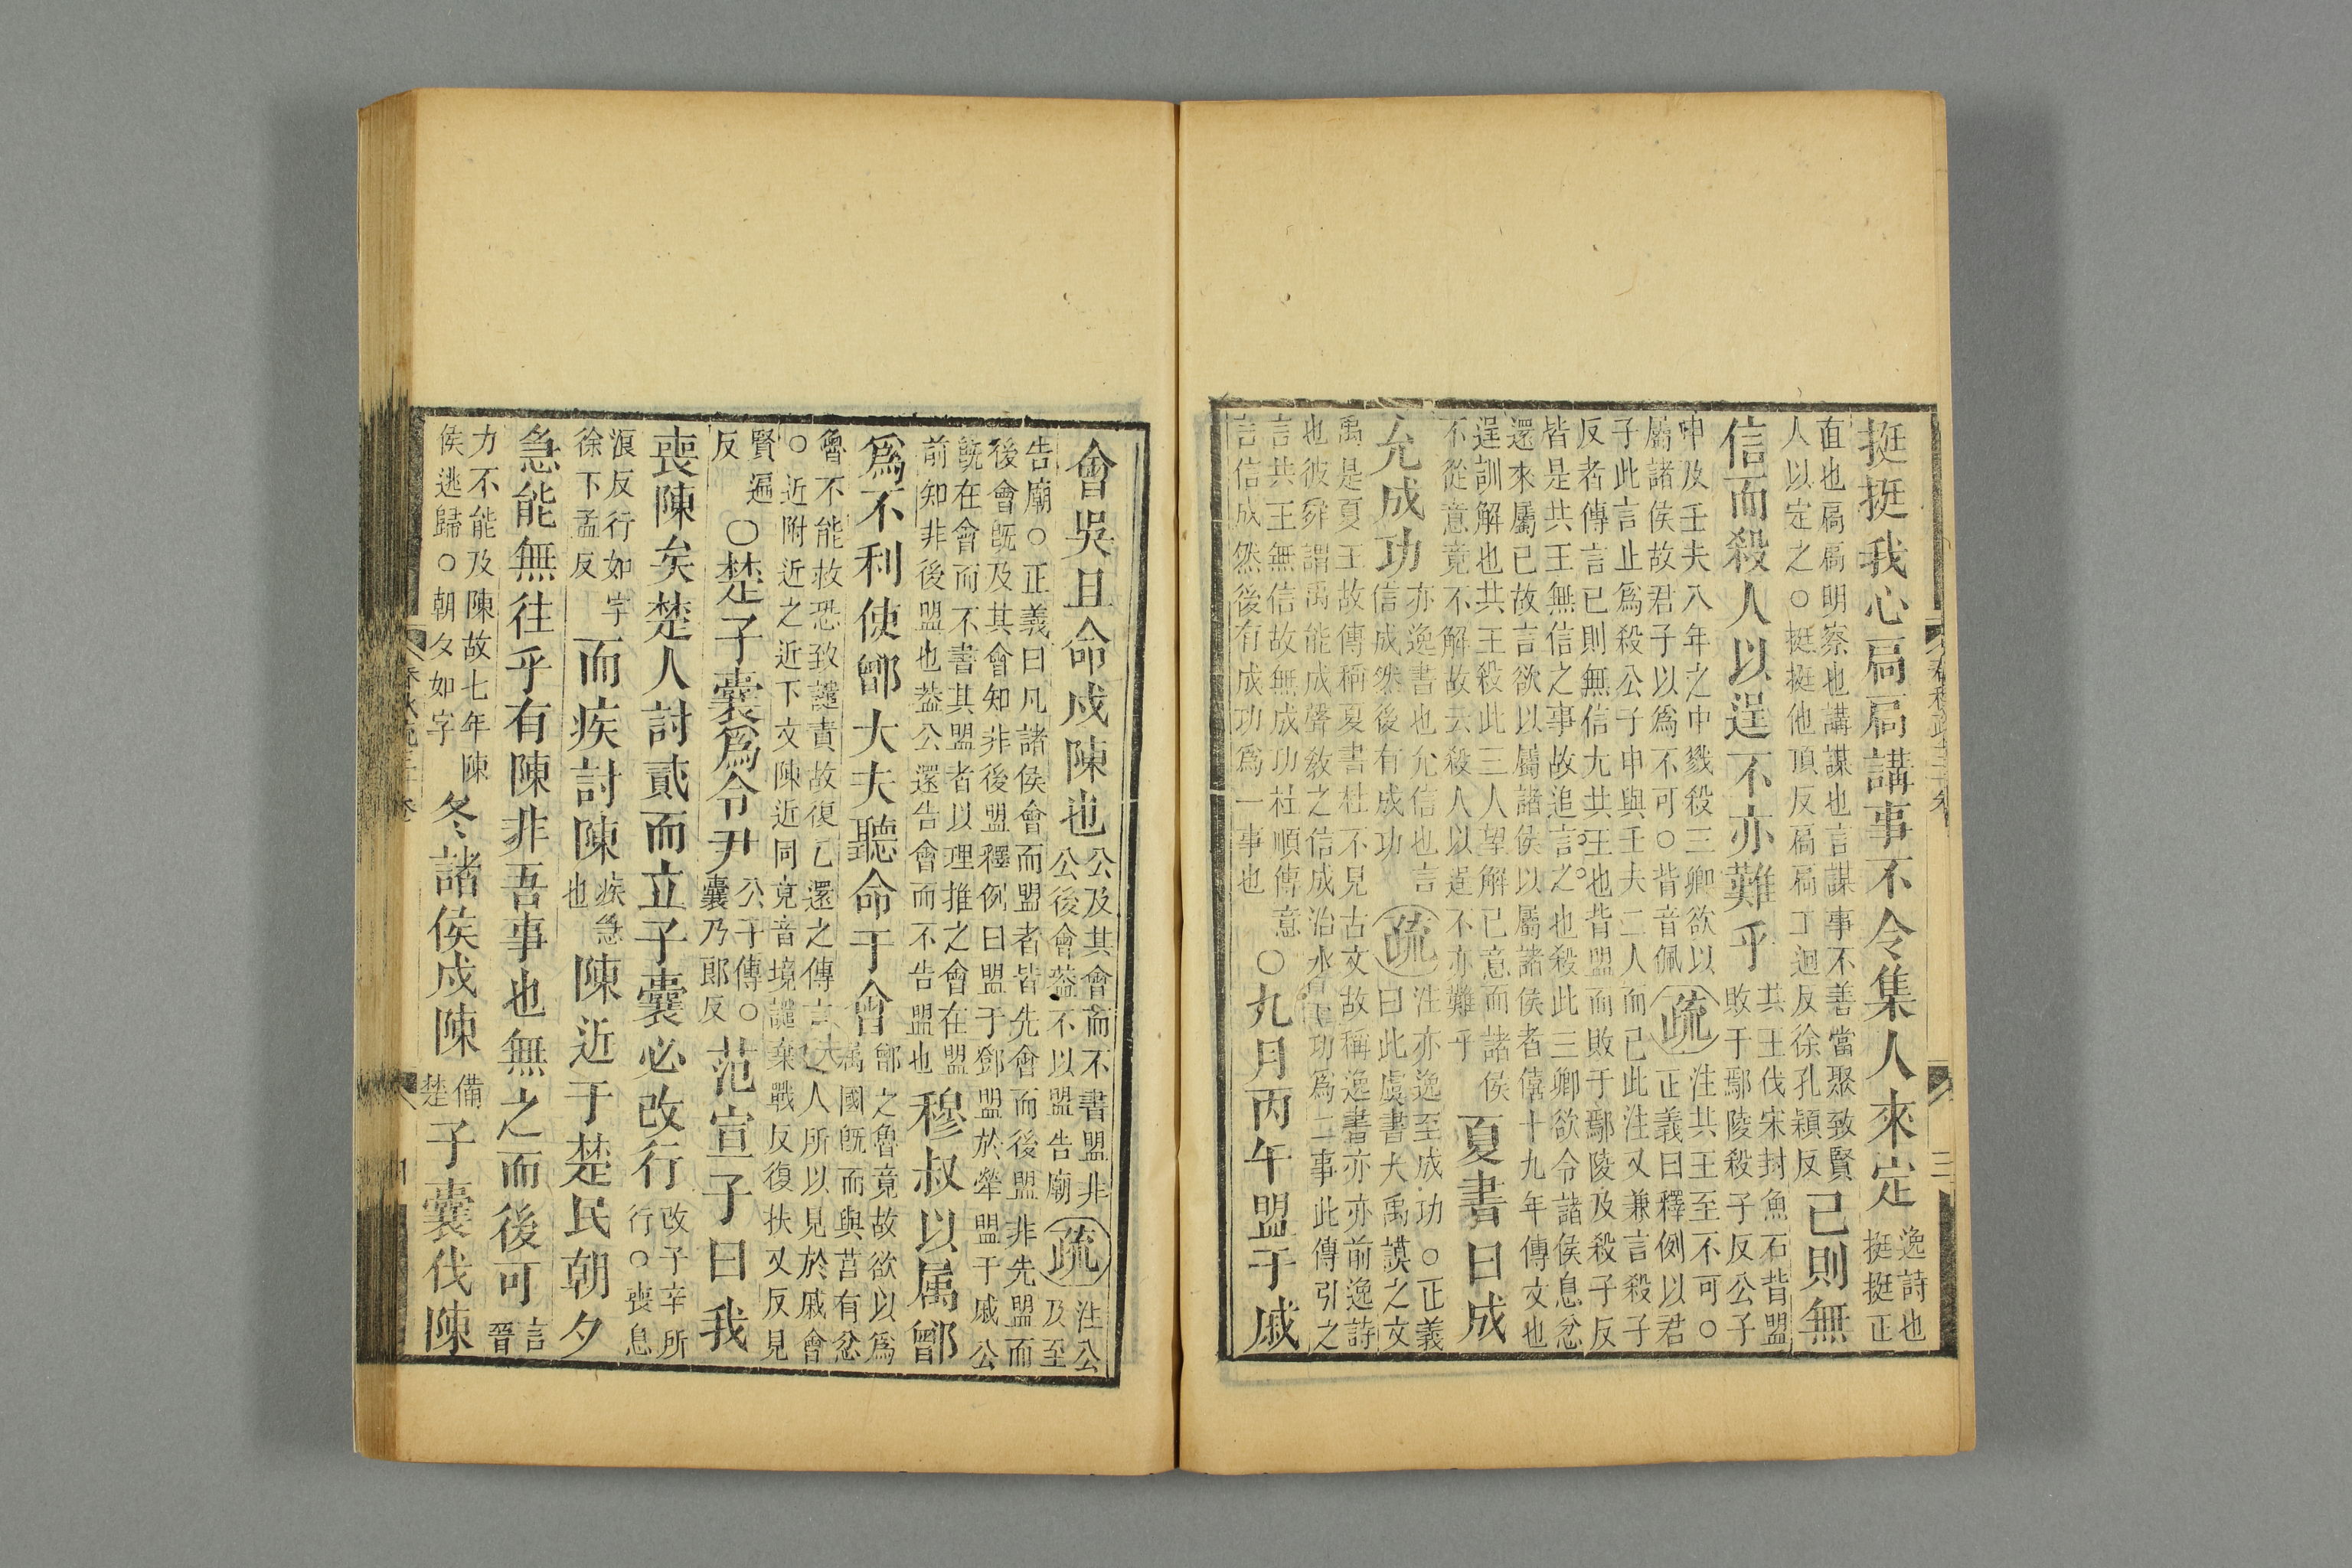 挺挺我心扃扃講事不令集人來定逸詩也挺挺正
直也扃扃明察也講謀也言謀事不善當聚致賢
人以定之○挺挺他頂反扃扃工迥反徐孔穎反己則無
信而殺人以逞不亦難乎共王伐宋封魚石背盟
敗于鄢陵殺子反公子
申及壬夫八年之中戮殺三卿欲以
屬諸侯故君子以為不可○背音佩疏注共王至不可○
正義曰釋例以君
子此言止為殺公子申與壬夫二人而已此注又兼言殺子
反者傳言已則無信尤共王也背盟而敗于鄢陵及殺子反
皆是共王無信之事故追言之也殺此三卿欲令諸侯息忿
還來屬已故言欲以屬諸侯以屬諸侯者僖十九年傳文也
逞訓解也共王殺此三人望解已意而諸侯
不從意竟不解故云殺人以逞不亦難乎夏書曰成
允成功亦逸書也允信也言
信成然後有成功疏注亦逸至成功○正義
曰此虞書大禹謨之文
禹是夏王故傳稱夏書杜不見古文故稱逸書亦亦前逸詩
也彼舜謂禹能成聲教之信成治水之功為二事此傳引之
言共王無信故無成功杜順傳意
言信成然後有成功為一事也○九月丙午盟于戚
會吳且命戍陳也公及其會而不書盟非
公後會蓋不以盟告廟疏注公
及至
告廟○正義曰凡諸侯會而盟者皆先會而後盟非先盟而
後會既及其會知非後盟釋例曰盟于鄧盟於犖盟于戚公
既在會而不書其盟者以理推之會在盟
前知非後盟也蓋公還告會而不告盟也穆叔以屬鄫
為不利使鄫大夫聽命于會鄫之魯竟故欲以為
屬國既而與莒有忿
魯不能救恐致譴責故復乞還之傳言
人所以見於戚會
○近附近之近下文陳近同竟音境譴棄戰反復扶又反見
賢遍
反○楚子囊為令尹公子傳○
囊乃郎反范宣子曰我
喪陳矣楚人討貳而立子囊必改行改子辛所
行○喪息
浪反行如字
徐下孟反而疾討陳疾急
也陳近于楚民朝夕
急能無往乎有陳非吾事也無之而後可言
晉
力不能及陳故七年陳
侯逃歸○朝夕如字冬諸侯戍陳備
楚子囊伐陳